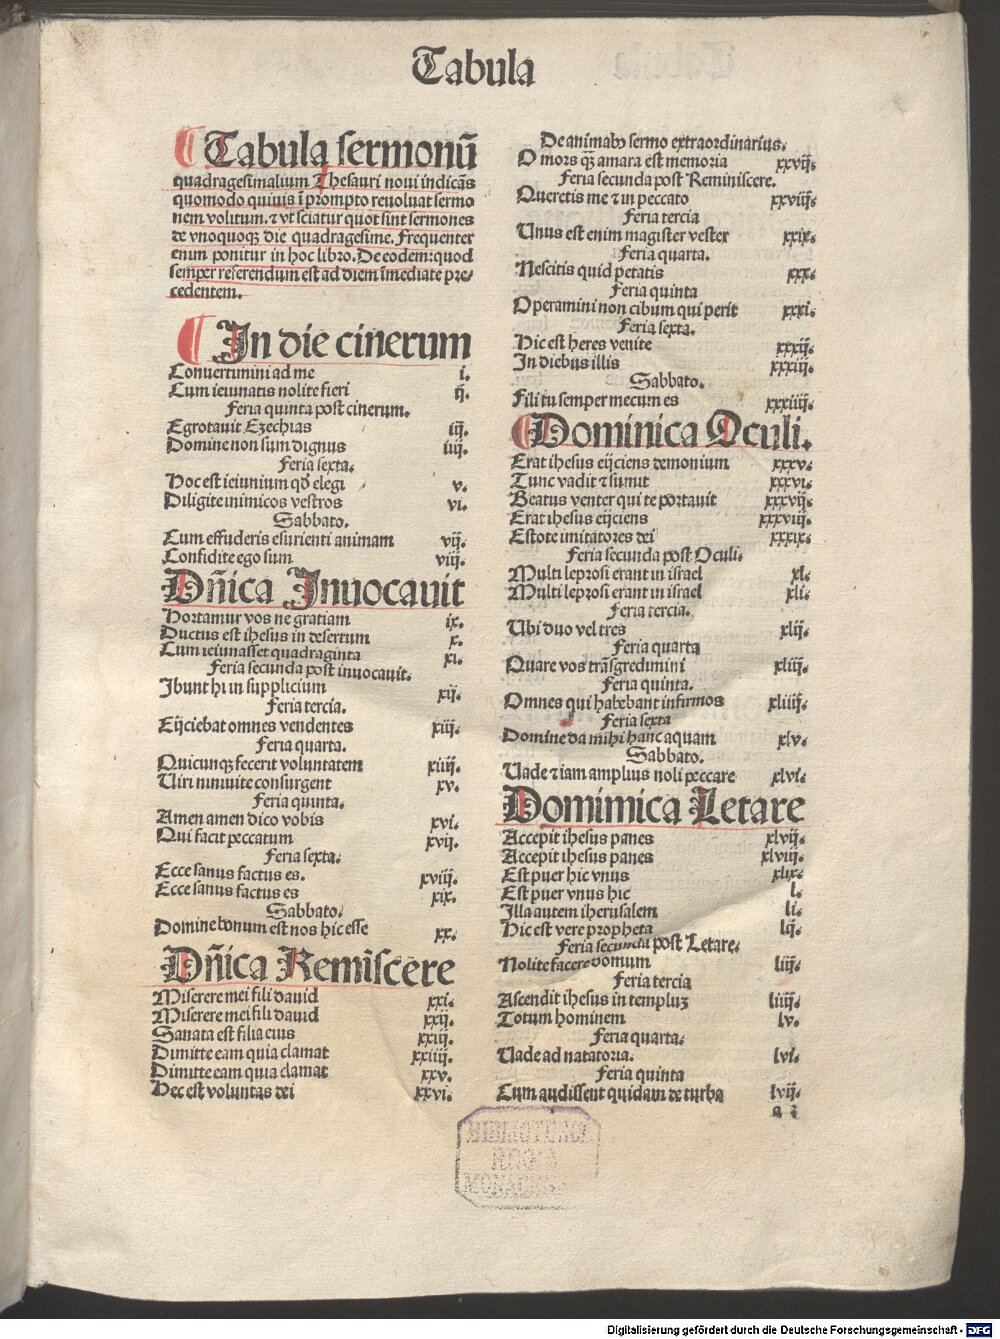 Tabula
Tabula sermonū
quadragesimalium Thesauri noui indicãs
quomodo quiuis ĩ prompto reuoluat sermo
nem volitum. ⁊ vt sciatur quot sint sermones
de vnoquoqꝫ die quadragesime. Frequenter
enim ponitur in hoc libro. De eodem: quod
semper referendum est ad diem ĩmediate pre⸗
cedentem.
In die cinerum
Conuertimini ad me i.
Cum ieiunatis nolite fieri ij.
Feria quinta post cinerum.
Egrotauit Ezechias iij.
Domine non sum dignus iiij.
Feria sexta.
Hoc est ieiunium qd̄ elegi v.
Diligite inimicos vestros vi.
Sabbato.
Cum effuderis esurienti animam vij.
Confidite ego sum viij.
Dñica Inuocauit
Hortamur vos ne gratiam ix.
Ductus est ihesus in desertum x.
Cum ieiunasset quadraginta xi.
Feria secunda post inuocauit.
Ibunt hi in supplicium xij.
Feria tercia.
Eijciebat omnes vendentes xiij.
Feria quarta.
Quicunqꝫ fecerit voluntatem xiiij.
Uiri niniuite consurgent xv.
Feria quinta.
Amen amen dico vobis xvi.
Qui facit peccatum xvij.
Feria sexta.
Ecce sanus factus es. xviij.
Ecce sanus factus es xix.
Sabbato.
Domine bonum est nos hic esse xx.
Dñica Remĩscere
Miserere mei fili dauid xxi.
Miserere mei fili dauid xxij.
Sanata est filia eius xxiij.
Dimitte eam quia clamat xxiiij.
Dimitte eam quia clamat xxv.
Hec est voluntas dei xxvi.
De animabꝫ sermo extraordinarius.
O mors qꝫ amara est memoria xxvij.
Feria secunda post Reminiscere.
Queretis me ⁊ in peccato xxviij.
Feria tercia
Unus est enim magister vester xxix.
Feria quarta.
Nescitis quid petatis xxx.
Feria quinta
Operamini non cibum qui perit xxxi.
Feria sexta.
Hic est heres venite xxxij.
In diebus illis xxxiij.
Sabbato.
Fili tu semper mecum es xxxiiij.
Dominica Oculi.
Erat ihesus eijciens demonium xxxv.
Tunc vadit ⁊ sumit xxxvi.
Beatus venter qui te portauit xxxvij.
Erat ihesus eijciens xxxviij.
Estote imitatores dei xxxix.
Feria secunda post Oculi.
Multi leprosi erant in israel xl.
Multi leprosi erant in israel xli.
Feria tercia.
Ubi duo vel tres xlij.
Feria quarta
Quare vos trãsgredimini xliij.
Feria quinta.
Omnes qui habebant infirmos xliiij.
Feria sexta
Domine da mihi hanc aquam xlv.
Sabbato.
Uade ⁊ iam amplius noli peccare xlvi.
Domimica Letare
Accepit ihesus panes xlvij.
Accepit ihesus panes xlviij.
Est puer hic vnus xlix.
Est puer vnus hic l.
Illa autem iherusalem li.
Hic est vere propheta lij.
Feria secunda post Letare.
Nolite facere domum liij.
Feria tercia
Ascendit ihesus in templuꝫ liiij.
Totum hominem lv.
Feria quarta.
Uade ad natatoria. lvi.
Feria quinta
Cum audissent quidam de turba lvij.
Digitalisierung gefördert durch die Deutsche Forschungsgemeinschaft - DFG